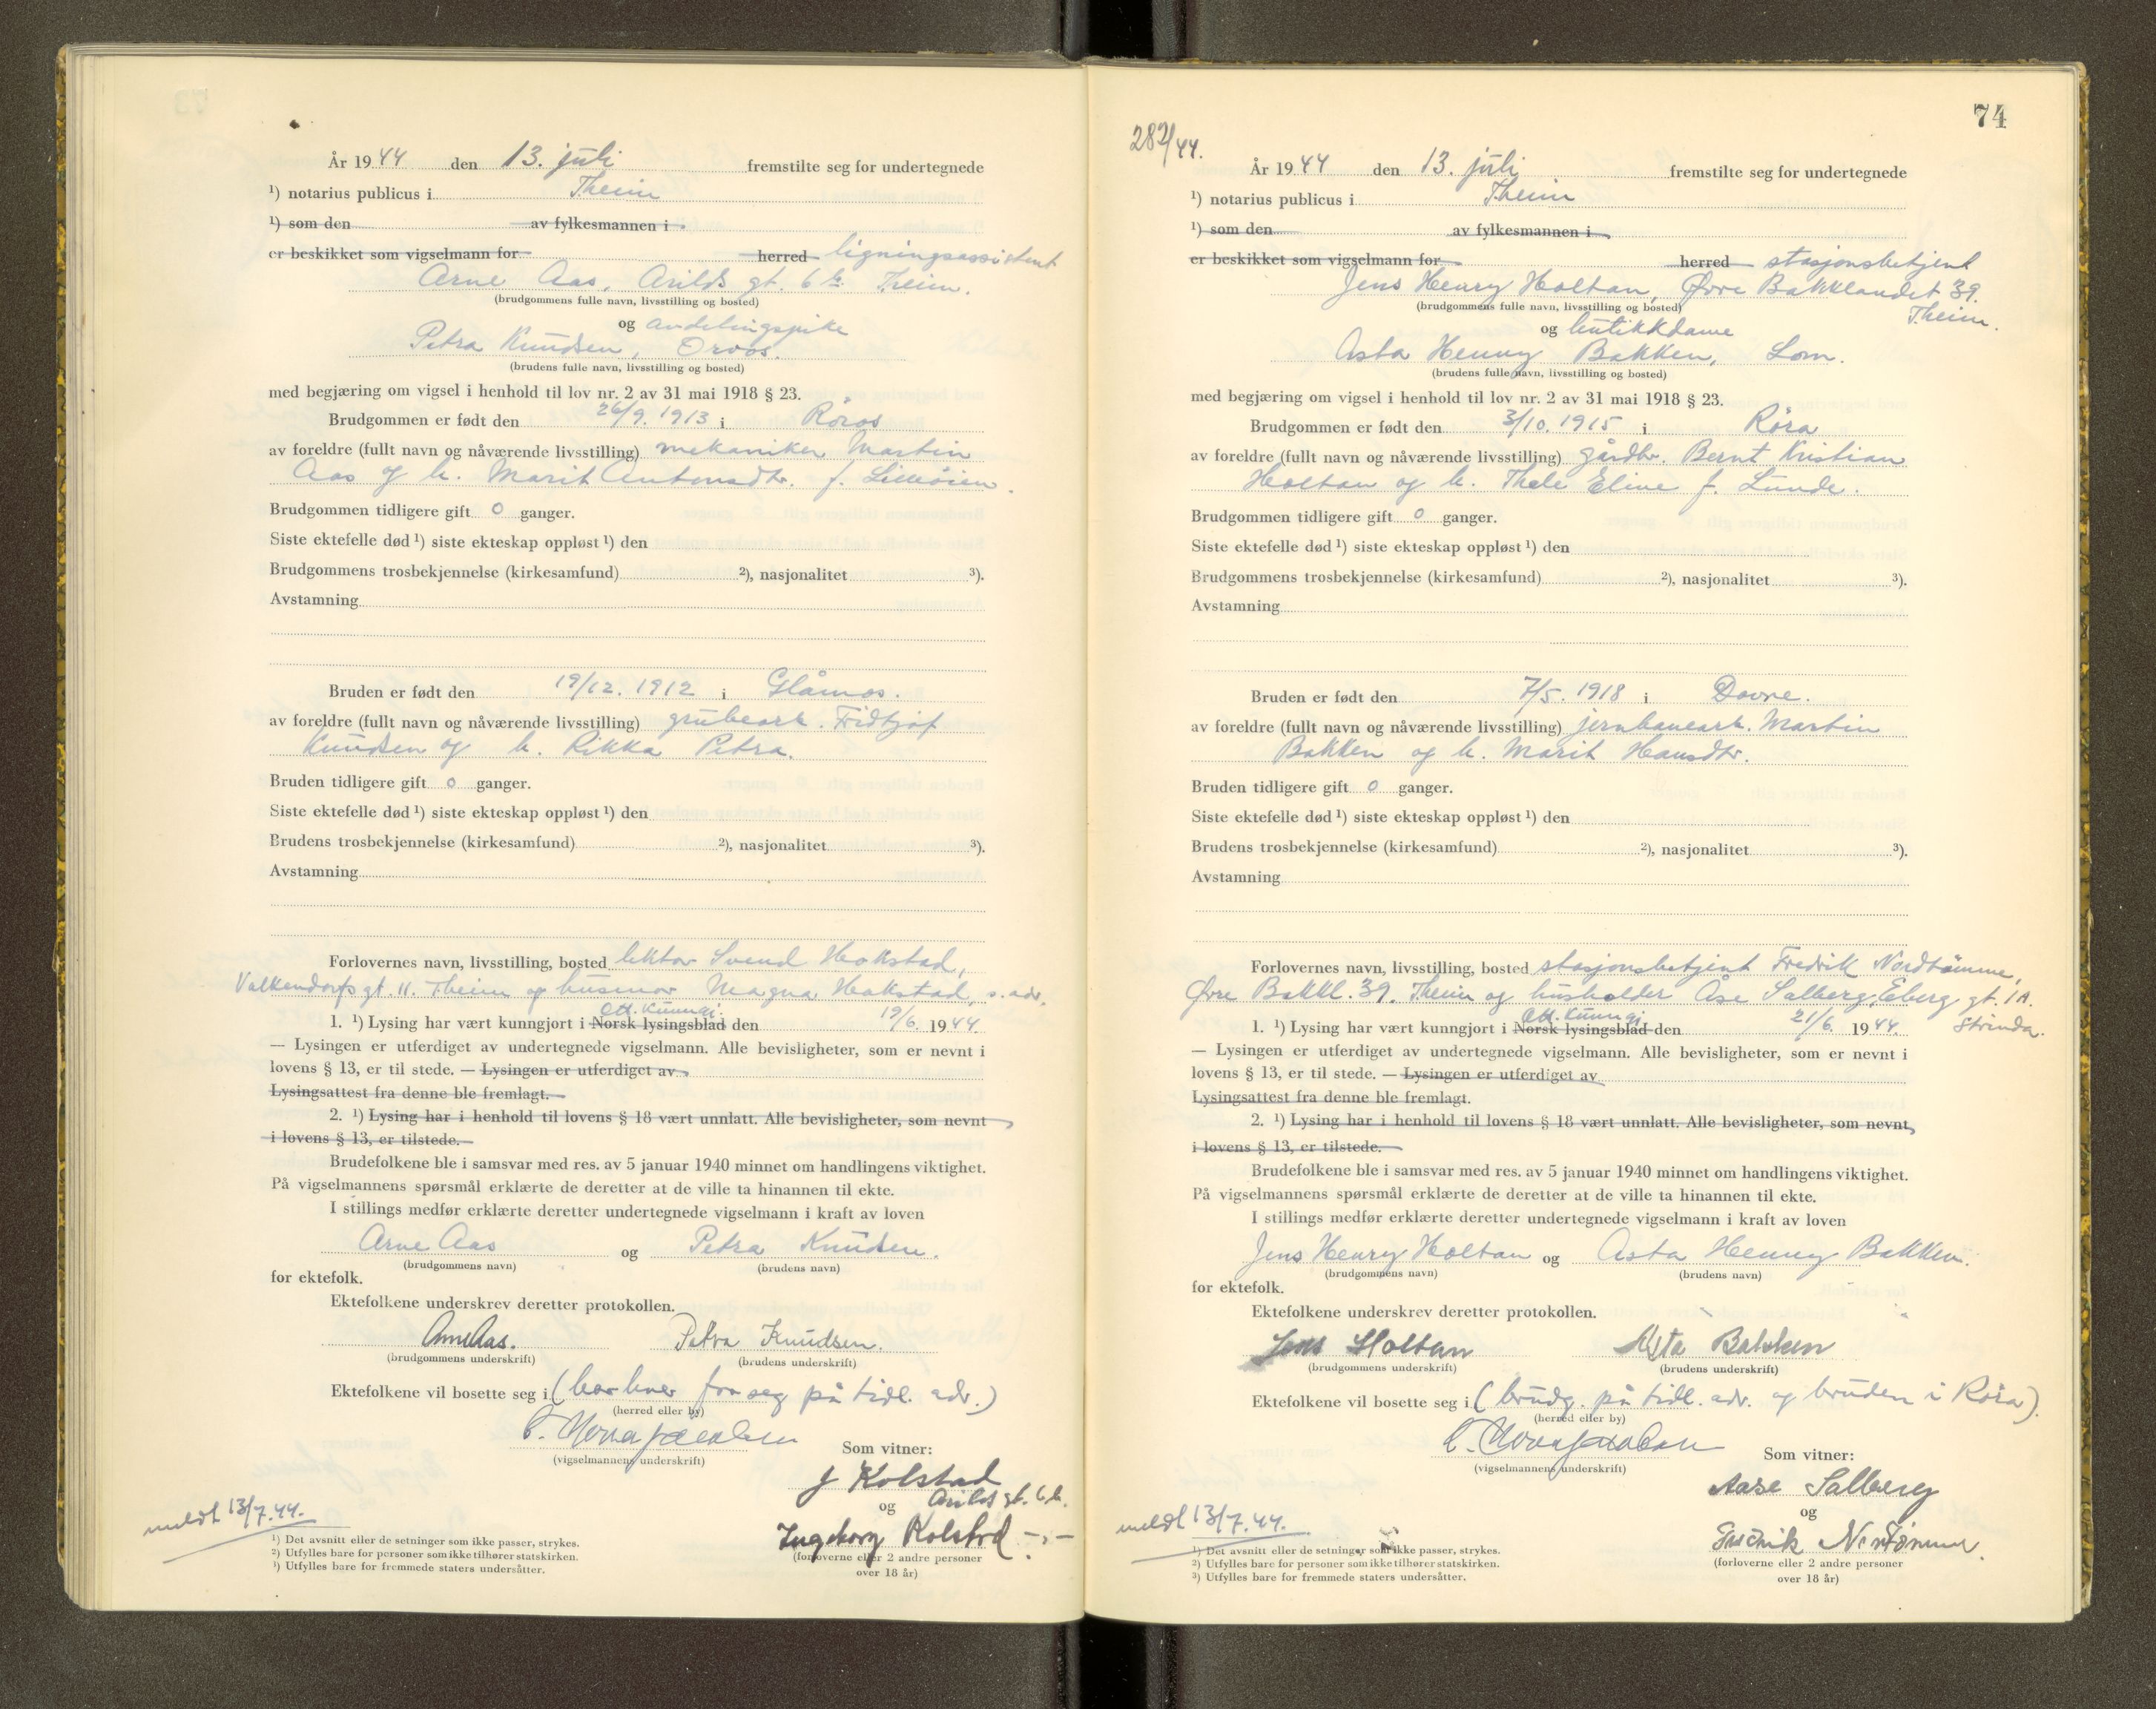 År 1944 den 13. juli fremstilte seg for undertegnede
¹) notarius publicus i Theim
¹) som den av fylkesmannen i
er beskikket som vigselmann for herred ligningsassistent
Arne Aas, Arilds gt. 6 b. Theim.
(brudgommens fulle navn, livsstilling og bosted)
og avdelingspike
Petra Knudsen, Orvos.
(brudens fulle navn, livsstilling og bosted)
med begjæring om vigsel i henhold til lov nr. 2 av 31 mai 1918 § 23.
Brudgommen er født den 26/9. 1913 i Röros
av foreldre (fullt navn og nåværende livsstilling) mekaniker Martin
Aas og h. Marit Antonsdtr. f. Lilleöien.
Brudgommen tidligere gift 0 ganger.
Siste ektefelle død ¹) siste ekteskap oppløst ¹) den
Brudgommens trosbekjennelse (kirkesamfund) ²), nasjonalitet ³).
Avstamning
Bruden er født den 19/12. 1912 i Glåmos.
av foreldre (fullt navn og nåværende livsstilling) grubearb. Fridtjof
Knudsen og h. Rikka Petra.
Bruden tidligere gift 0 ganger.
Siste ektefelle død ¹) siste ekteskap oppløst ¹) den
Brudens trosbekjennelse (kirkesamfund) ²), nasjonalitet ³).
Avstamning
Forlovernes navn, livsstilling, bosted lektor Svend Hokstad,
Valkendorfs gt. 11. Theim og husmor Magna Hokstad, s. adr.
Off. Kunngj.
1. ¹) Lysing har vært kunngjort i Norsk lysingsblad den 19/6. 1944.
— Lysingen er utferdiget av undertegnede vigselmann. Alle bevisligheter, som er nevnt i
lovens § 13, er til stede. — Lysingen er utferdiget av
Lysingsattest fra denne ble fremlagt.
2. ¹) Lysing har i henhold til lovens § 18 vært unnlatt. Alle bevisligheter, som nevnt
i lovens § 13, er tilstede.
Brudefolkene ble i samsvar med res. av 5 januar 1940 minnet om handlingens viktighet.
På vigselmannens spørsmål erklærte de deretter at de ville ta hinannen til ekte.
I stillings medfør erklærte deretter undertegnede vigselmann i kraft av loven
Arne Aas og Petra Knudsen.
(brudgommens navn) (brudens navn)
for ektefolk.
Ektefolkene underskrev deretter protokollen.
Arne Aas. Petra Knudsen.
(brudgommens underskrift) (brudens underskrift)
Ektefolkene vil bosette seg i (bor hver for seg på tidl. adr.)
(herred eller by)
(vigselmannens underskrift) Som vitner:
J Kolstad
og Arilds gt. 6 b.
Ingeborg Kolstad -,-
(forloverne eller 2 andre personer
over 18 år)
meldt 13/7.44.
¹) Det avsnitt eller de setninger som ikke passer, strykes.
²) Utfylles bare for personer som ikke tilhører statskirken.
³) Utfylles bare for fremmede staters undersåtter.
74
282/44.
År 1944 den 13. juli fremstilte seg for undertegnede
¹) notarius publicus i Theim
¹) som den av fylkesmannen i
er beskikket som vigselmann for herred stasjonsbetjent
Jens Henry Holtan, Øvre Bakklandet 39.
(brudgommens fulle navn, livsstilling og bosted) Theim.
og butikkdame
Asta Henny Bakken, Lom.
(brudens fulle navn, livsstilling og bosted)
med begjæring om vigsel i henhold til lov nr. 2 av 31 mai 1918 § 23.
Brudgommen er født den 3/10. 1915 i Röra
av foreldre (fullt navn og nåværende livsstilling) gårdbr. Bernt Kristian
Holtan og h. Thale Eline f. Lunde.
Brudgommen tidligere gift 0 ganger.
Siste ektefelle død ¹) siste ekteskap oppløst ¹) den
Brudgommens trosbekjennelse (kirkesamfund) ²), nasjonalitet ³).
Avstamning
Bruden er født den 7/5. 1918 i Dovre.
av foreldre (fullt navn og nåværende livsstilling) jernbanearb. Martin
Bakken og h. Marit Hansdtr.
Bruden tidligere gift 0 ganger.
Siste ektefelle død ¹) siste ekteskap oppløst ¹) den
Brudens trosbekjennelse (kirkesamfund) ²), nasjonalitet ³).
Avstamning
Forlovernes navn, livsstilling, bosted stasjonsbetjent Fredrik Nordtömme,
Øvre Bakkl. 39. Theim og husholder Åse Salberg, Eberg gt. 1A.
Off. Kunngj. Strinda.
1. ¹) Lysing har vært kunngjort i Norsk lysingsblad den 21/6. 1944.
— Lysingen er utferdiget av undertegnede vigselmann. Alle bevisligheter, som er nevnt i
lovens § 13, er til stede. — Lysingen er utferdiget av
Lysingsattest fra denne ble fremlagt.
2. ¹) Lysing har i henhold til lovens § 18 vært unnlatt. Alle bevisligheter, som nevnt
i lovens § 13, er tilstede.
Brudefolkene ble i samsvar med res. av 5 januar 1940 minnet om handlingens viktighet.
På vigselmannens spørsmål erklærte de deretter at de ville ta hinannen til ekte.
I stillings medfør erklærte deretter undertegnede vigselmann i kraft av loven
Jens Henry Holtan og Asta Henny Bakken.
(brudgommens navn) (brudens navn)
for ektefolk.
Ektefolkene underskrev deretter protokollen.
Jens Holtan Asta Bakken
(brudgommens underskrift) (brudens underskrift)
Ektefolkene vil bosette seg i (brudg. på tidl. adr. og bruden i Röra).
(herred eller by)
(vigselmannens underskrift) Som vitner:
Aase Salberg
og
Fredrik Nordtömme.
(forloverne eller 2 andre personer
over 18 år)
meldt 13/7.44.
¹) Det avsnitt eller de setninger som ikke passer, strykes.
²) Utfylles bare for personer som ikke tilhører statskirken.
³) Utfylles bare for fremmede staters undersåtter.